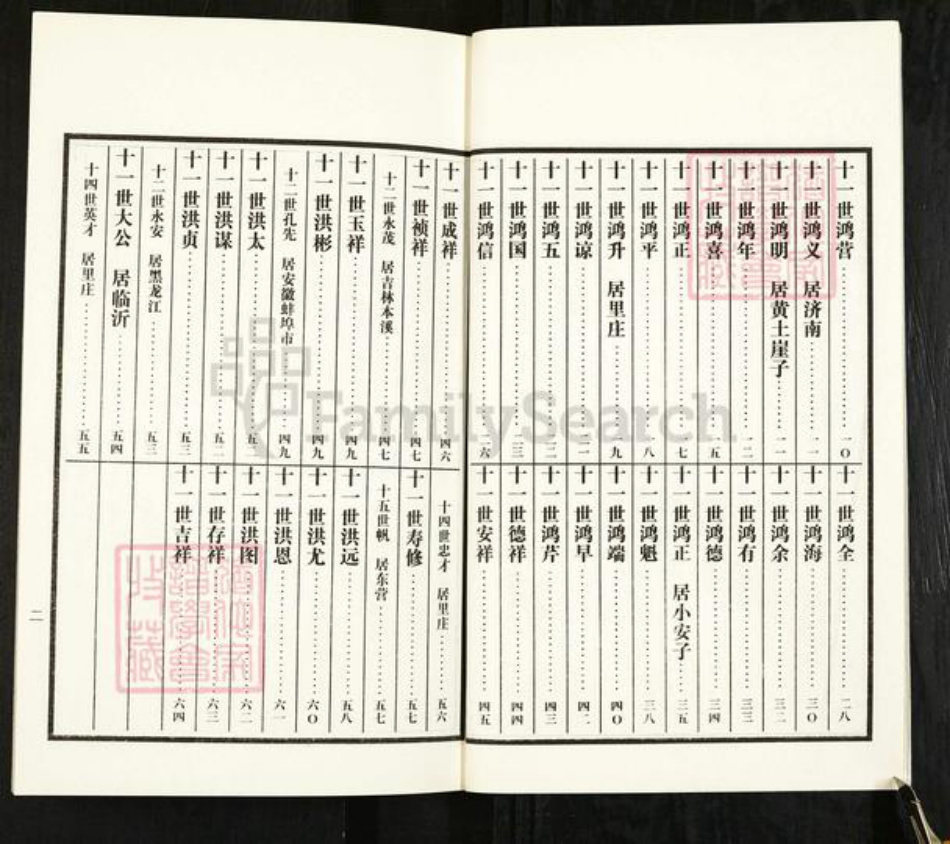 十一世鸿营 一〇
十一世鸿义 居济南
十一世鸿明 居黄土崖子
十一世鸿年
十一世鸿喜 一五
十一世鸿正 一七
十一世鸿平 一八
十一世鸿升 居里庄 一九
十一世鸿谅
十一世鸿五
十一世鸿国
十一世鸿信
十一世鸿全 二八
十一世鸿海 三〇
十一世鸿余
十一世鸿有
十一世鸿德 三四
十一世鸿正 居小安子 三五
十一世鸿魁 三八
十一世鸿端 四〇
十一世鸿早
十一世鸿芹 四三
十一世德祥 四四
十一世安祥 四五
十一世成祥 四六
十一世祯祥 四七
十二世永茂 居吉林本溪 四七
十一世玉祥 四九
十一世洪彬 四九
十二世孔先 居安徽蚌埠市 四九
十一世洪太
十一世洪谋 五二
十一世洪贞 五三
十二世永安 居黑龙江 五三
十一世大公 居临沂 五四
十四世英才 居里庄 五五
十四世忠才 居里庄 五六
十一世寿修 五七
十五世帆 居东营 五七
十一世洪远 五八
十一世洪尤 六〇
十一世洪恩 六一
十一世洪图 六二
十一世存祥 六三
十一世吉祥 六四
二
FamilySearch